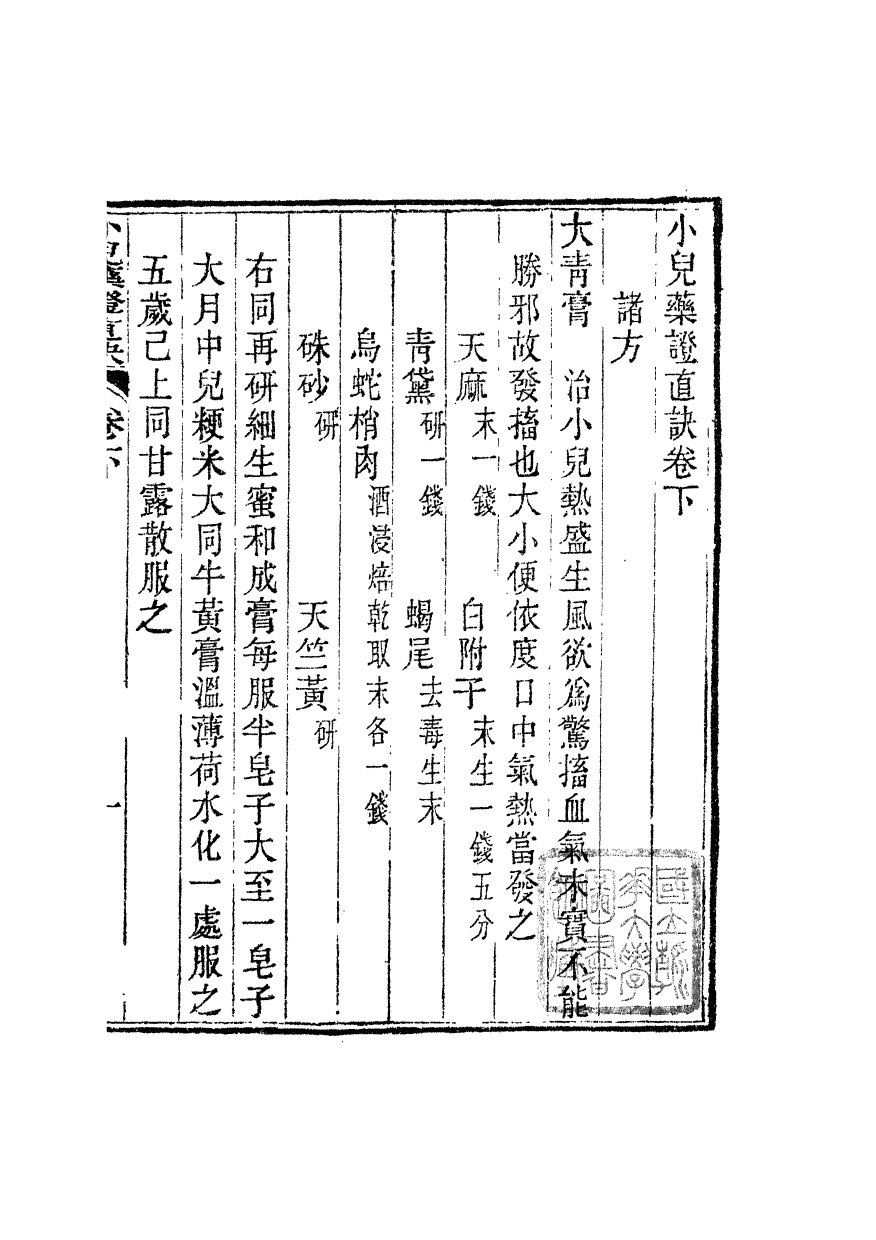 小兒藥證直訣卷下
諸方
大靑膏　治小兒熱盛生風欲爲驚搐血氣未實不能
勝邪故發搐也大小便依度口中氣熱當發之
天麻末一錢　白附子末生一錢五分
靑黛研一錢　蝎尾去毒生末
烏蛇梢肉酒浸焙乾取末各一錢
硃砂研　天竺黃研
右同再研細生蜜和成膏每服半皂子大至一皂子
大月中兒粳米大同牛黃膏溫薄荷水化一處服之
五歲已上同甘露散服之
小兒藥證直訣　卷下　一